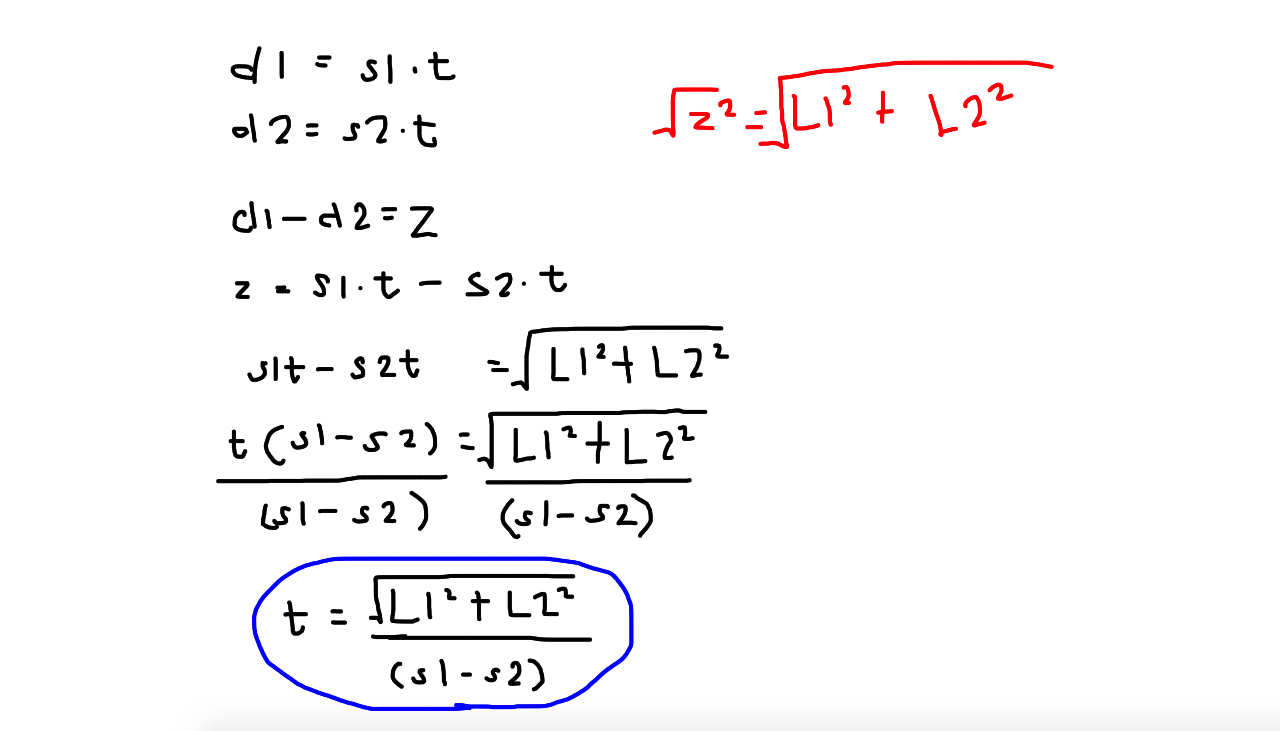 d1 = s1·t
d2 = s2·t
√z² = √L1² + L2²
d1 – d2 = Z
z = s1·t – s2·t
s1t – s2t = √L1² + L2²
t (s1 – s2) = √L1² + L2²
(s1 – s2) (s1 – s2)
t = √L1² + L2²
(s1 – s2)